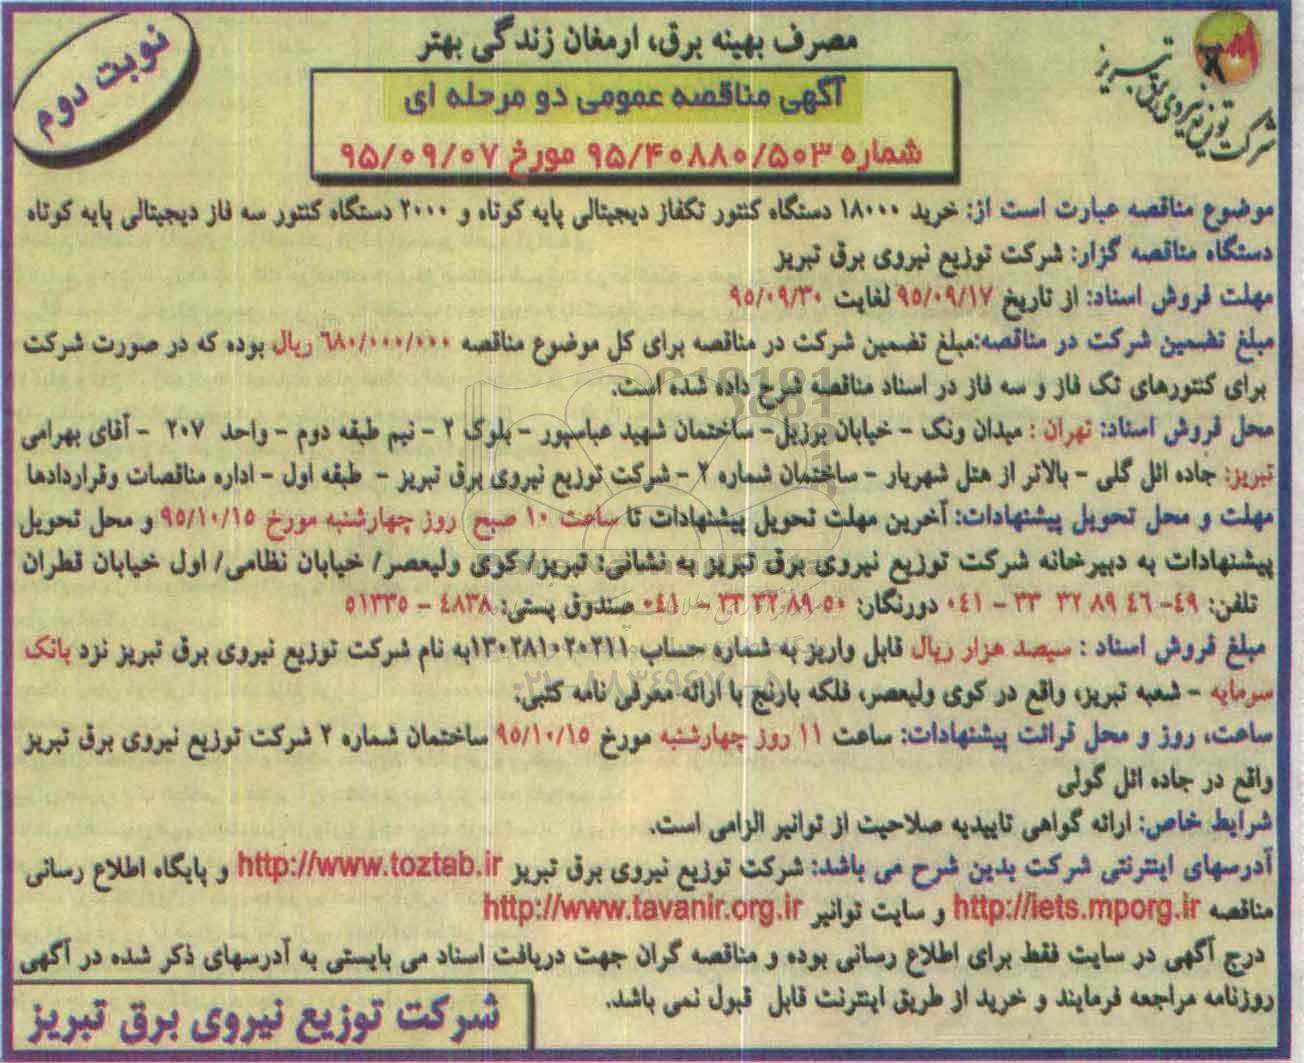 شرکت توزیع نیروی برق تبریز
نوبت دوم
مصرف بهینه برق، ارمغان زندگی بهتر
آگهی مناقصه عمومی دو مرحله ای
شماره ۹۵/۴۰۸۸۰/۵۰۳ مورخ ۹۵/۰۹/۰۷
موضوع مناقصه عبارت است از: خرید ۱۸۰۰۰ دستگاه کنتور تکفاز دیجیتالی پایه کوتاه و ۲۰۰۰ دستگاه کنتور سه فاز دیجیتالی پایه کوتاه
دستگاه مناقصه گزار: شرکت توزیع نیروی برق تبریز
مهلت فروش اسناد: از تاریخ ۹۵/۰۹/۱۷ لغایت ۹۵/۰۹/۳۰
مبلغ تضمین شرکت در مناقصه:مبلغ تضمین شرکت در مناقصه برای کل موضوع مناقصه ۶۸۰/۰۰۰/۰۰۰ ریال بوده که در صورت شرکت
برای کنتورهای تک فاز و سه فاز در اسناد مناقصه شرح داده شده است.
محل فروش اسناد: تهران : میدان ونک - خیابان برزیل- ساختمان شهید عباسپور - بلوک ۲ - نیم طبقه دوم - واحد ۲۰۷ - آقای بهرامی
تبریز: جاده ائل گلی - بالاتر از هتل شهریار - ساختمان شماره ۲ - شرکت توزیع نیروی برق تبریز - طبقه اول - اداره مناقصات وقراردادها
مهلت و محل تحویل پیشنهادات: آخرین مهلت تحویل پیشنهادات تا ساعت ۱۰ صبح روز چهارشنبه مورخ ۹۵/۱۰/۱۵ و محل تحویل
پیشنهادات به دبیرخانه شرکت توزیع نیروی برق تبریز به نشانی: تبریز/ کوی ولیعصر/ خیابان نظامی/ اول خیابان قطران
تلفن: ۴۹- ۴۶ ۸۹ ۳۲ ۳۳ - ۰۴۱ دورنگار: ۵۰ ۸۹ ۳۲ ۳۳ - ۰۴۱ صندوق پستی: ۴۸۳۸ - ۵۱۳۳۵
مبلغ فروش اسناد : سیصد هزار ریال قابل واریز به شماره حساب ۱۳۰۲۸۱۰۲۰۲۱۱به نام شرکت توزیع نیروی برق تبریز نزد بانک
سرمایه - شعبه تبریز، واقع در کوی ولیعصر، فلکه بارنج با ارائه معرفی نامه کتبی.
ساعت، روز و محل قرائت پیشنهادات: ساعت ۱۱ روز چهارشنبه مورخ ۹۵/۱۰/۱۵ ساختمان شماره ۲ شرکت توزیع نیروی برق تبریز
واقع در جاده ائل گولی
شرایط خاص: ارائه گواهی تاییدیه صلاحیت از توانیر الزامی است.
آدرسهای اینترنتی شرکت بدین شرح می باشد: شرکت توزیع نیروی برق تبریز http://www.toztab.ir و پایگاه اطلاع رسانی
مناقصه http://iets.mporg.ir و سایت توانیر http://www.tavanir.org.ir
درج آگهی در سایت فقط برای اطلاع رسانی بوده و مناقصه گران جهت دریافت اسناد می بایستی به آدرسهای ذکر شده در آگهی
روزنامه مراجعه فرمایند و خرید از طریق اینترنت قابل قبول نمی باشد.
شرکت توزیع نیروی برق تبریز